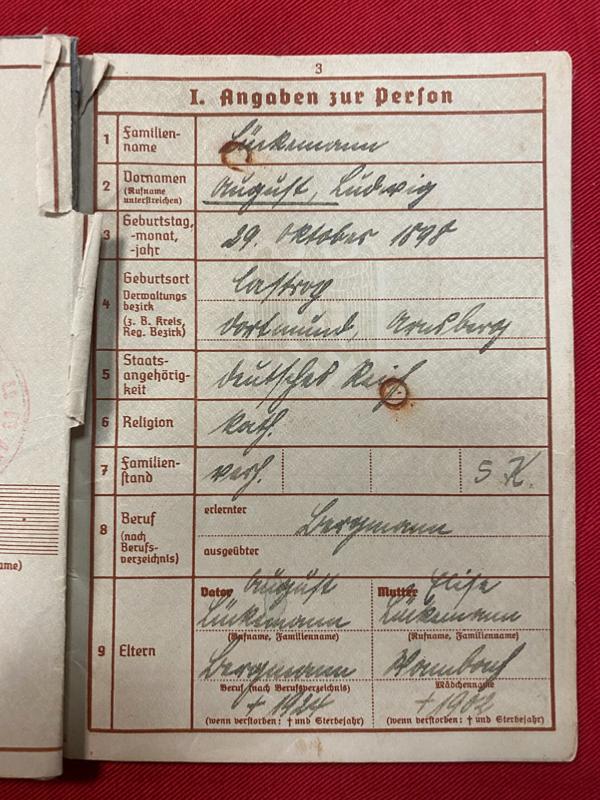 3
I. Angaben zur Person
1 Familien-
name
Lückemann
2 Vornamen
(Rufname
unterstreichen)
August, Ludwig
3 Geburtstag,
-monat,
-jahr
29. Oktober 1898
4 Geburtsort
Verwaltungs
bezirk
(z. B. Kreis,
Reg. Bezirk)
Castrop
Dortmund, Arnsberg
5 Staats-
angehörig-
keit
deutsches Reich.
6 Religion
kath.
7 Familien-
stand
verh.
5 K.
8 Beruf
(nach
Berufs-
verzeichnis)
erlernter
Bergmann
ausgeübter
9 Eltern
Vater August
Lückemann
(Rufname, Familienname)
Bergmann
Beruf (nach Berufsverzeichnis)
† 1924
(wenn verstorben: † und Sterbejahr)
Mutter Elise
Lückemann
(Rufname, Familienname)
Mädchenname
† 1902
(wenn verstorben: † und Sterbejahr)
ame)